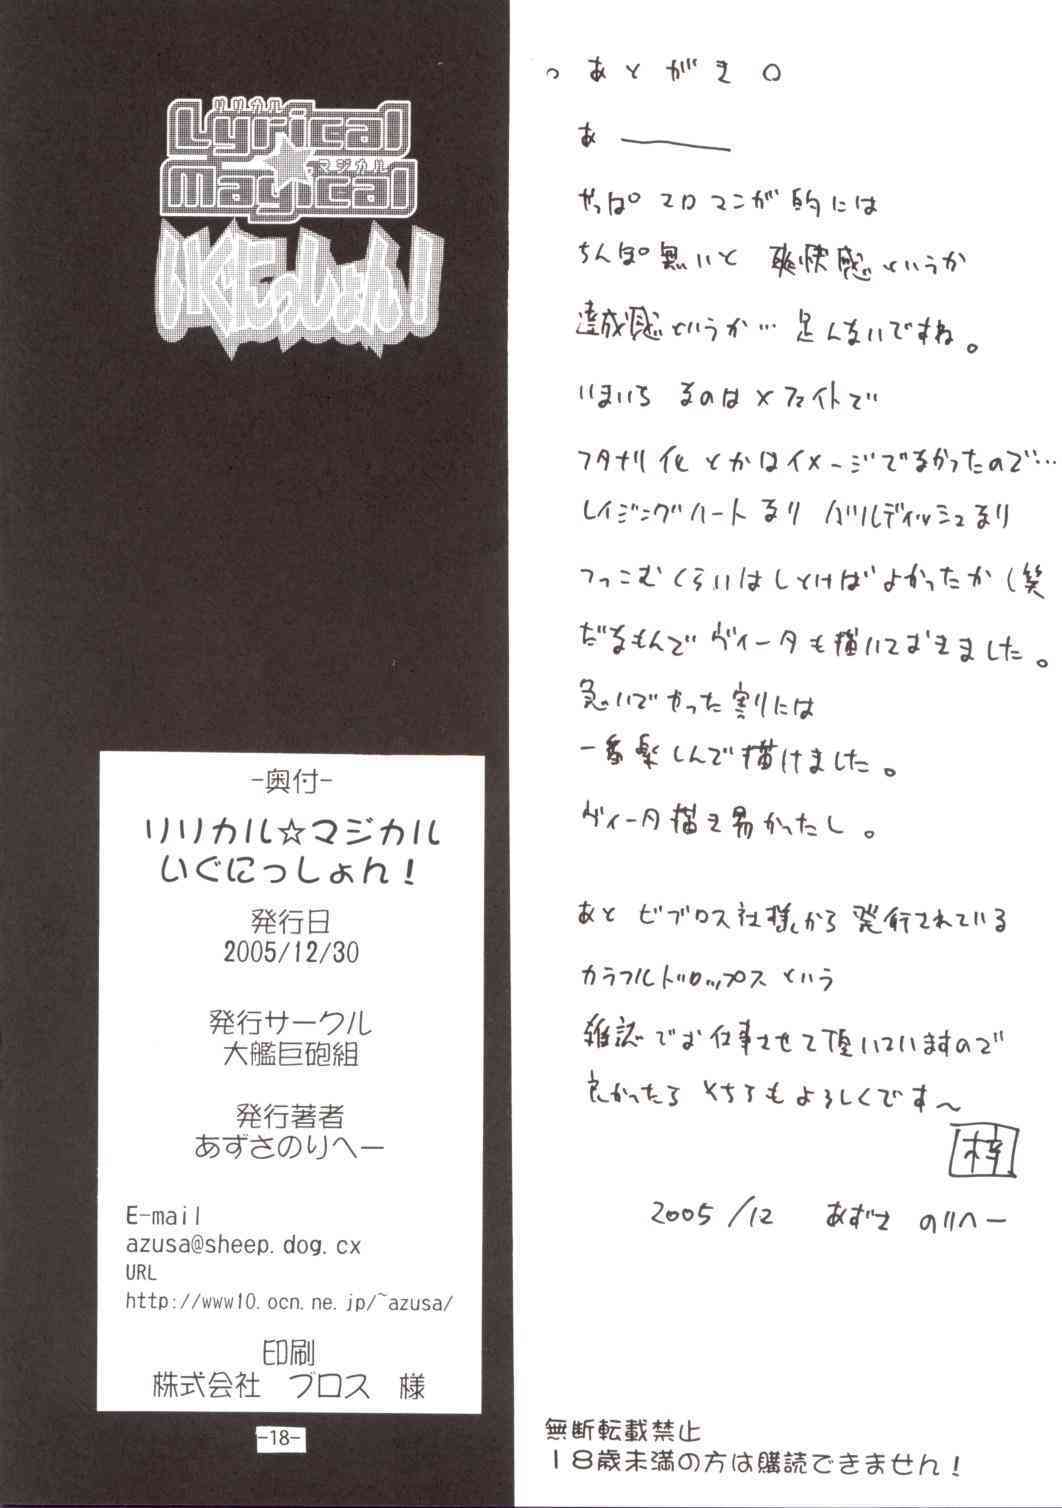 リリカル
Lyrical
マジカル
Magical
いぐにっしょん！
-奥付-
リリカル☆マジカル
いぐにっしょん！
発行日
2005/12/30
発行サークル
大艦巨砲組
発行著者
あずさのりへー
E-mail
azusa@sheep.dog.cx
URL
http://www10.ocn.ne.jp/~azusa/
印刷
株式会社　ブロス　様
-18-
○あとがき○
あ———
やっぱ エロマンガ的には
ちんぽ無いと 爽快感というか
達成感というか… 足んないですね。
いまいち なのは×フェイトで
フタナリ化とかはイメージでなかったので…
レイジングハートなり バルディッシュなり
つっこむくらいはしとけばよかったか（笑
だもんで ヴィータも描いておきました。
急いでやった割りには
一番楽しんで描けました。
ヴィータ描き易かったし。
あと ビブロス社様から発行されている
カラフルドロップスという
雑誌でお仕事させて頂いていますので
良かったら そちらもよろしくです〜
梓
2005/12　あずさ のりへー
無断転載禁止
１８歳未満の方は購読できません！